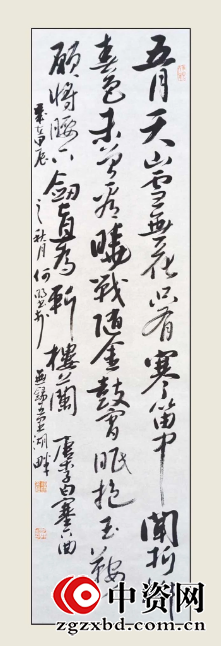 五月天山雪無花只有寒笛中聞折柳
春色未曾看曉戰隨金鼓宵眠抱玉鞍
願將腰下劍直為斬樓蘭 唐李白塞下曲
歲在甲辰之秋月何 無錫五里湖畔
中资网
zgzxbd.com.cn